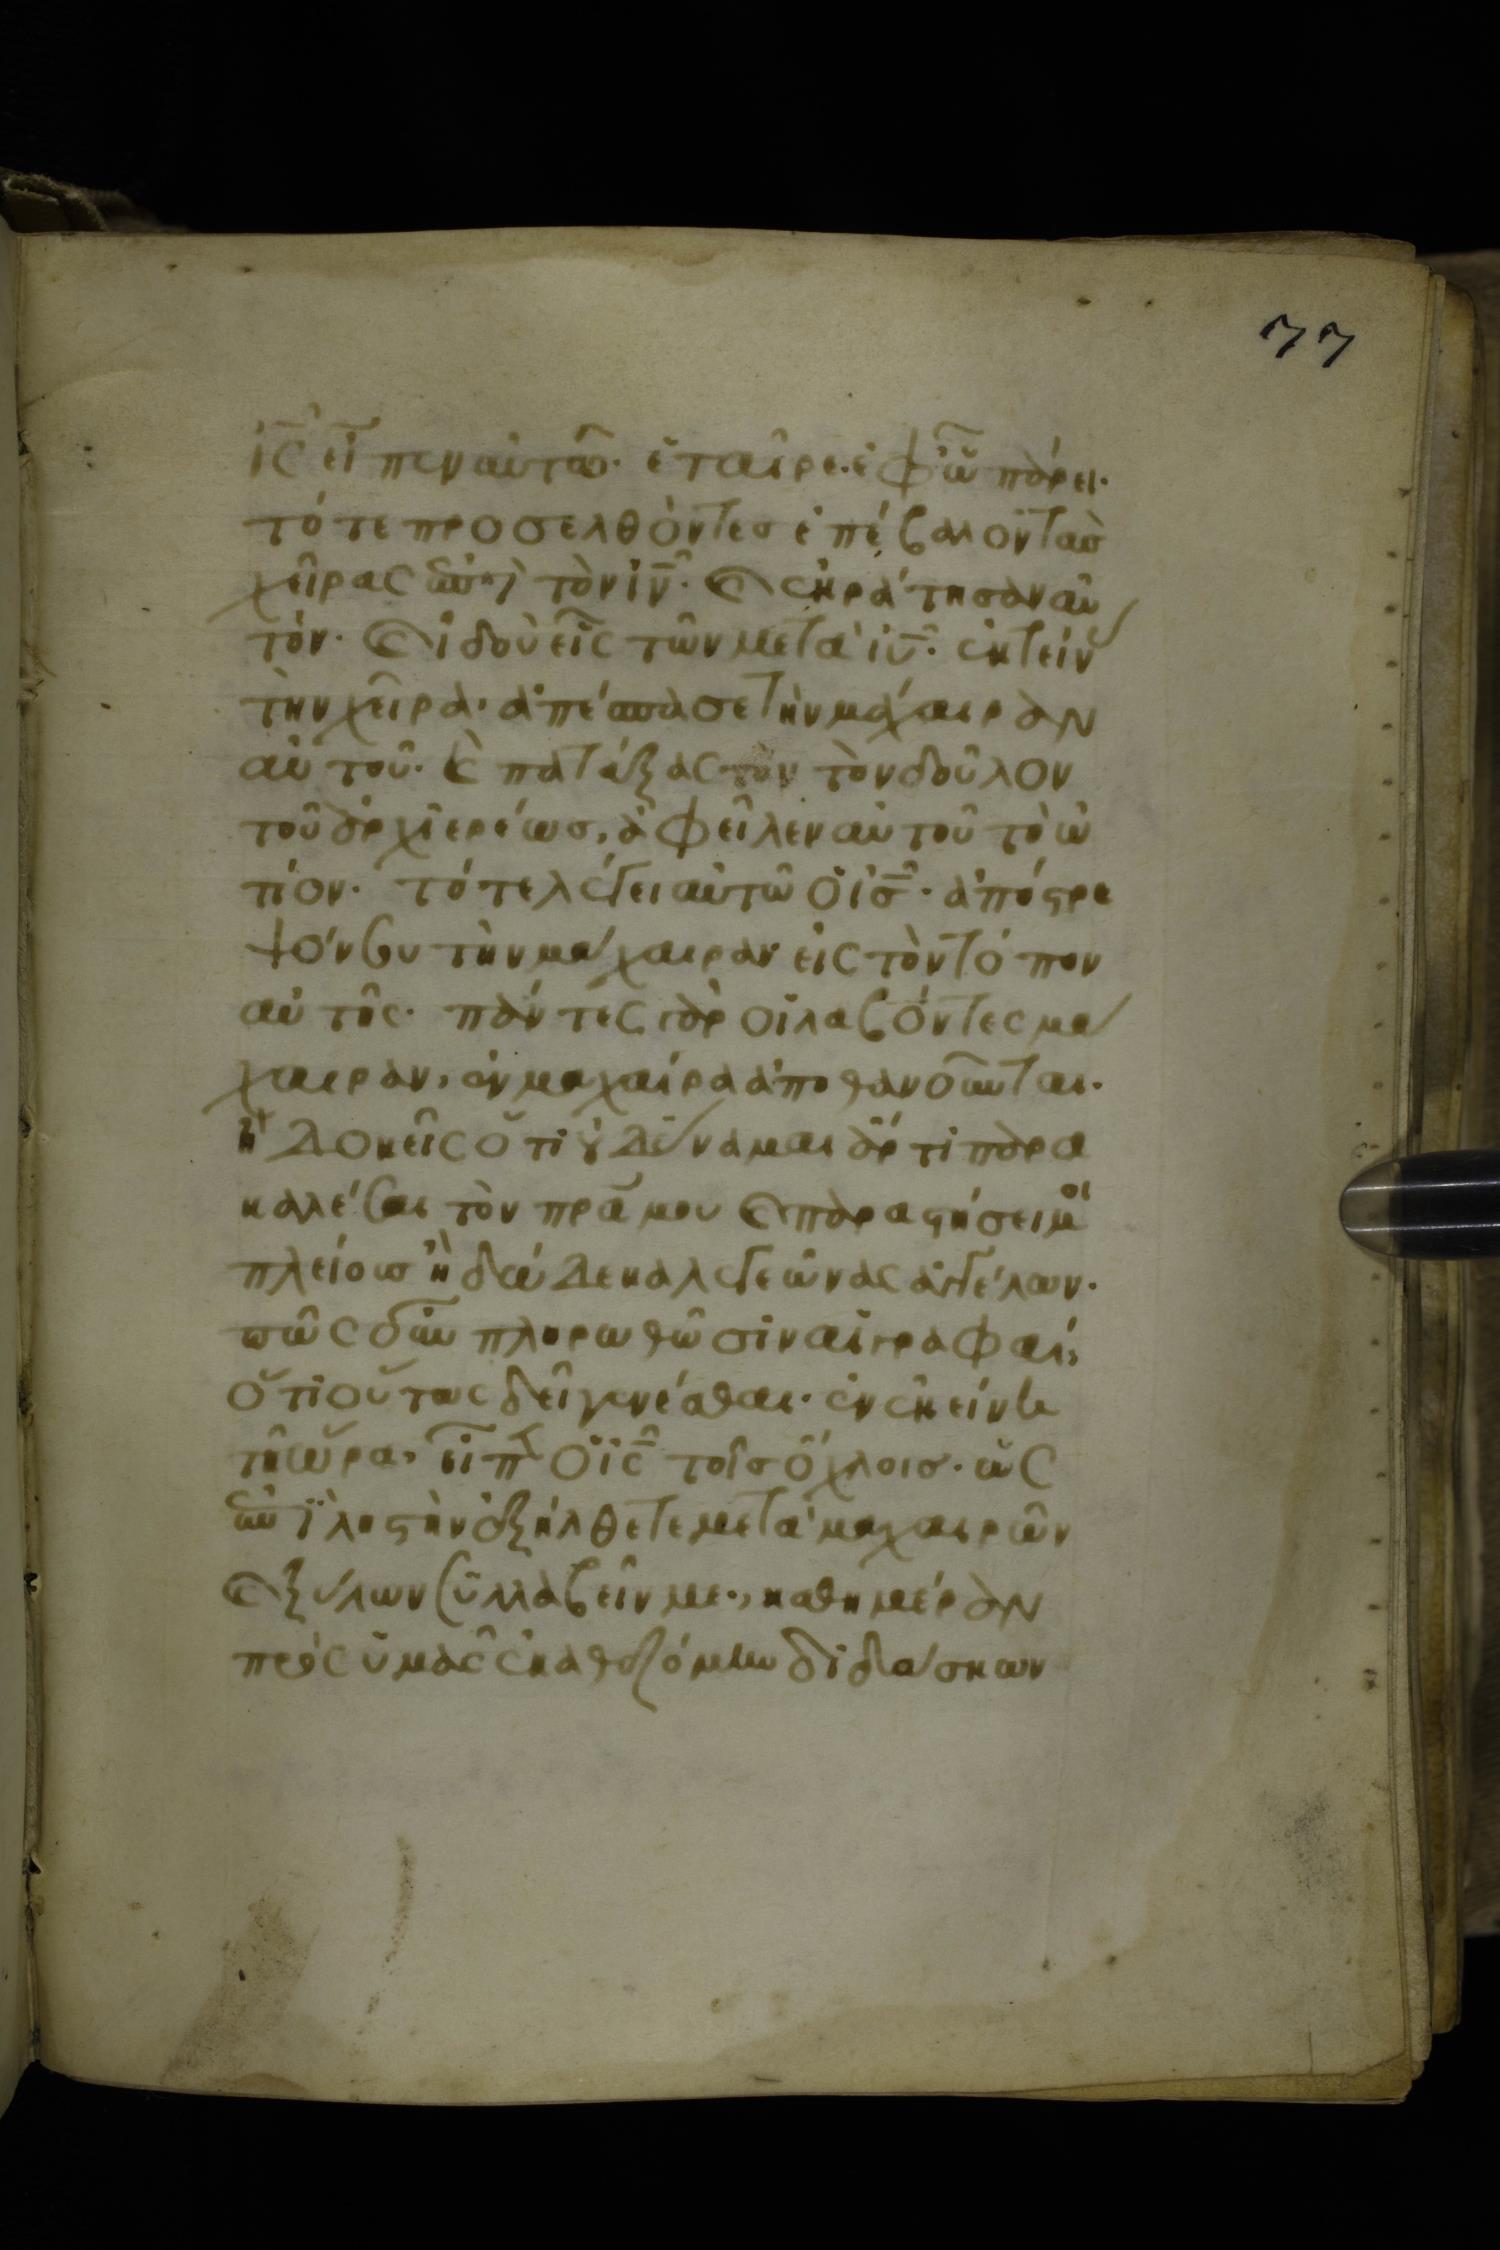 77
ις εἶπεν αὐτῶ· ἑταῖρε· ἐφ' ὧ πάρει·
τότε προσελθόντες ἐπέβαλον τὰσ
χεῖρας ἐπὶ τὸν ιν· καὶ ἐκράτησαν αὐ
τόν· καὶ ἰδοὺ εἷς τῶν μετὰ ιυ· ἐκτείν
τὴν χεῖρα· ἀπέσπασε τὴν μάχαιραν
αὐτοῦ· καὶ πατάξας τὸν τὸν δοῦλον
τοῦ ἀρχιερέωσ, ἀφεῖλεν αὐτοῦ τὸ ὠ
τίον· τότε λέγει αὐτῶ ὁ ισ· ἀπόστρε
ψόν σου τὴν μάχαιραν εἰς τὸν τόπον
αὐτῆς· πάντες γὰρ οἱ λαβόντες μά
χαιραν, ἐν μαχαίρα ἀποθανοῦνται·
ἢ δοκεῖς ὅτι οὐ δύναμαι ἄρτι παρα
καλέσαι τὸν πρα μου καὶ παραστήσει μοι
πλείουσ ἢ δώδεκα λεγεῶνας ἀγγέλων·
πῶς οὖν πληρωθῶσιν αἱ γραφαί,
ὅτι οὕτως δεῖ γενέσθαι· ἐν ἐκείνη
τῆ ὥρα, εἶπ ὁ ις τοῖσ ὄχλοισ· ὡς
ἐπὶ ληστὴν ἐξήλθετε μετὰ μαχαιρῶν
καὶ ξύλων συλλαβεῖν με·, καθημέραν
πρὸς ὑμᾶς ἐκαθεζόμην διδάσκων